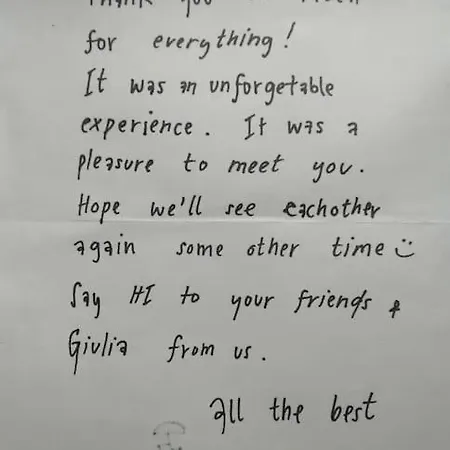 Thank you
for everything!
It was an unforgetable
experience. It was a
pleasure to meet you.
Hope we'll see eachother
again some other time :)
Say HI to your friends &
Giulia from us.
all the best